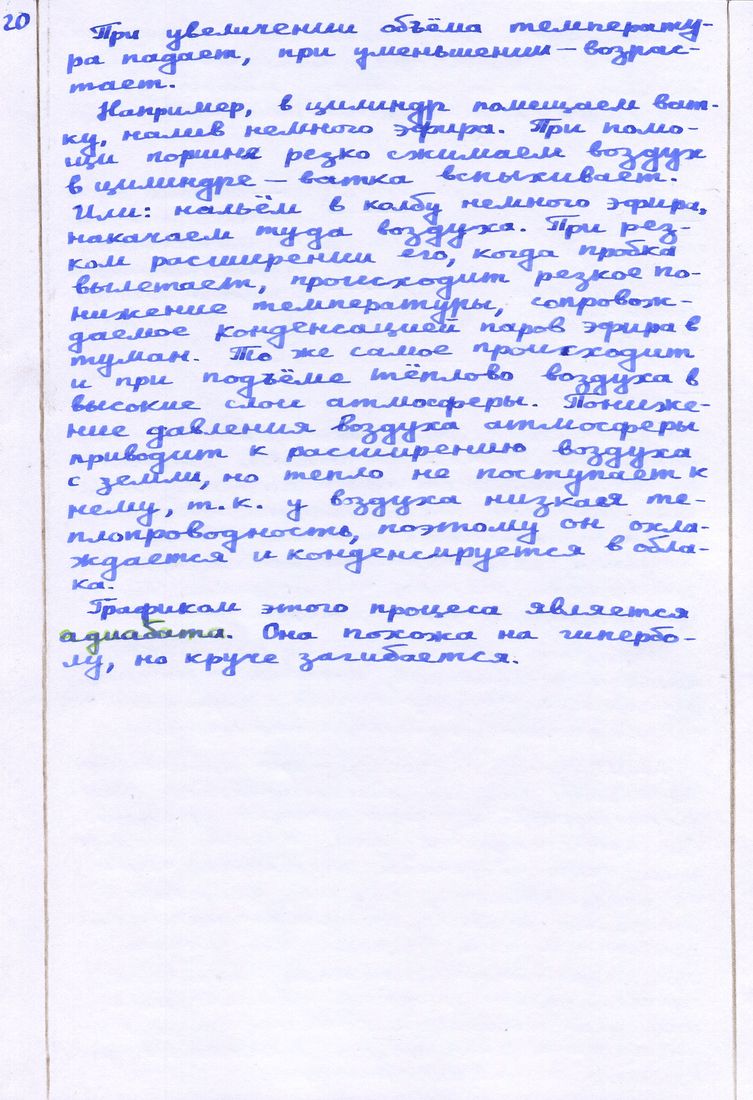 20
При увеличении объёма температу-
ра падает, при уменьшении — возрас-
тает.
Например, в цилиндр помещаем ват-
ку, налив немного эфира. При помо-
щи поршня резко сжимаем воздух
в цилиндре — ватка вспыхивает.
Или: нальём в колбу немного эфира,
накачаем туда воздуха. При рез-
ком расширении его, когда пробка
вылетает, происходит резкое по-
нижение температуры, сопровож-
даемое конденсацией паров эфира в
туман. То же самое происходит
и при подъёме тёплово воздуха в
высокие слои атмосферы. Пониже-
ние давления воздуха атмосферы
приводит к расширению воздуха
с земли, но тепло не поступает к
нему, т.к. у воздуха низкая те-
плопроводность, поэтому он охла-
ждается и конденсируется в обла-
ка.
Графиком этого процеса является
адиабата. Она похожа на гипербо-
лу, но круче загибается.